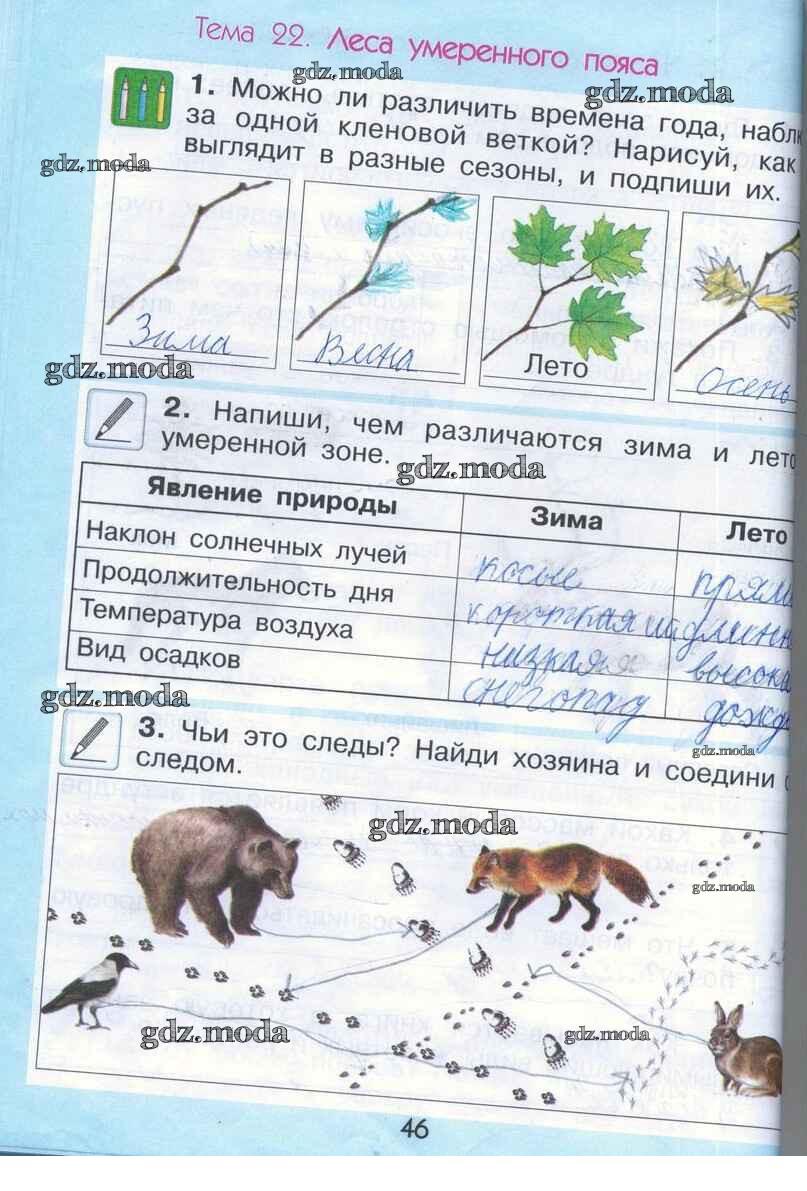 Тема 22. Леса умеренного пояса
gdz.moda
gdz.moda
1. Можно ли различить времена года, набл
за одной кленовой веткой? Нарисуй, как
gdz.moda
выглядит в разные сезоны, и подпиши их.
Зима
Весна
Лето
Осень
gdz.moda
2. Напиши, чем различаются зима и лето
умеренной зоне.
gdz.moda
Явление природы Зима Лето
Наклон солнечных лучей косые прям
Продолжительность дня короткая длинн
Температура воздуха низкая высока
Вид осадков снегопад дожд
gdz.moda
3. Чьи это следы? Найди хозяина и соедини с
gdz.moda
следом.
gdz.moda
gdz.moda
gdz.moda
gdz.moda
46